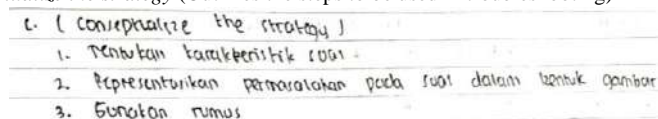 c. ( Conseptualize the strategy )
1. Tentukan karakteristik soal.
2. Representasikan permasalahan pada soal dalam bentuk gambar
3. Gunakan rumus